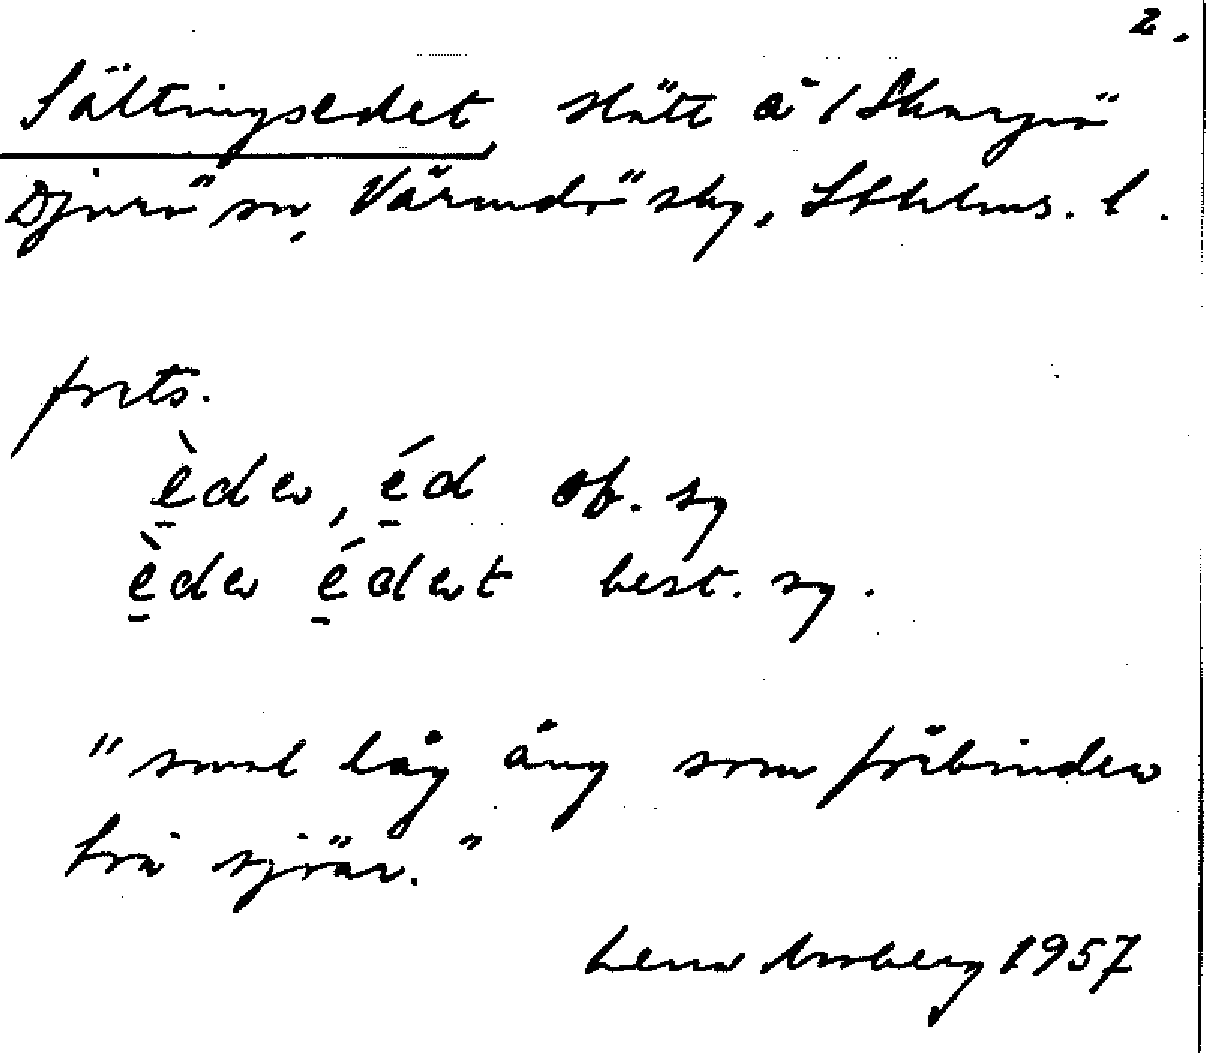 2.
Sältingsedet, slätt å /Skarpö
Djurö sn, Värmdö skg, Sthlms. l.
forts.
èder, éd ob. sg
èder édert best. sg.
"smal låg äng som förbinder
två sjöar."
Lena Moberg 1957